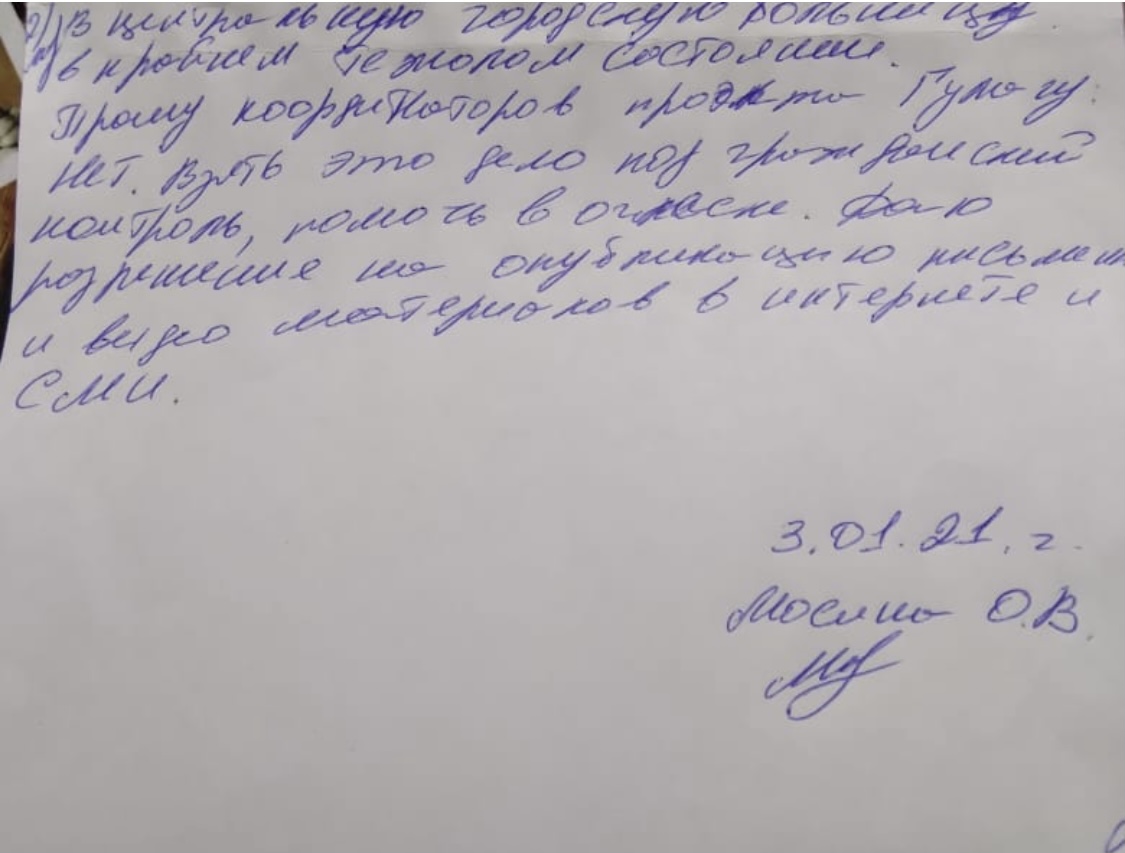 в центральную городскую больницу.
в крайнем тежолом состоянии.
Прошу координаторов проэкта Гулагу.
НЕТ. Взять это дело под гражданский
контроль, помочь в огласке. Даю
разрешение на опубликацию письмен
и видео материалов в интернете и
СМИ.
3.01.21.г.
О.В.